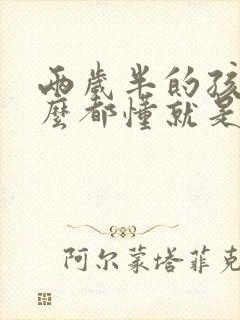 兩歲半的孩
麼都懂就是
阿尔蒙塔菲克